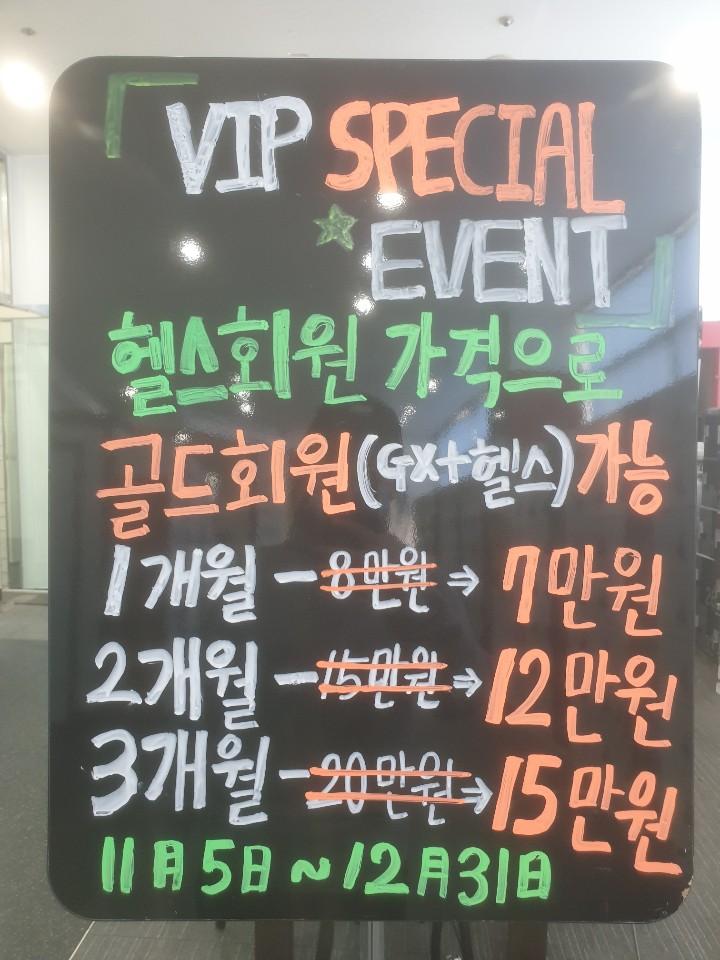 VIP SPECIAL
EVENT
헬스회원 가격으로
골드회원(GX+헬스)가능
1개월 - 8만원 ⇒ 7만원
2개월 - 15만원 ⇒ 12만원
3개월 - 20만원 → 15만원
11月5日 ~ 12月31日